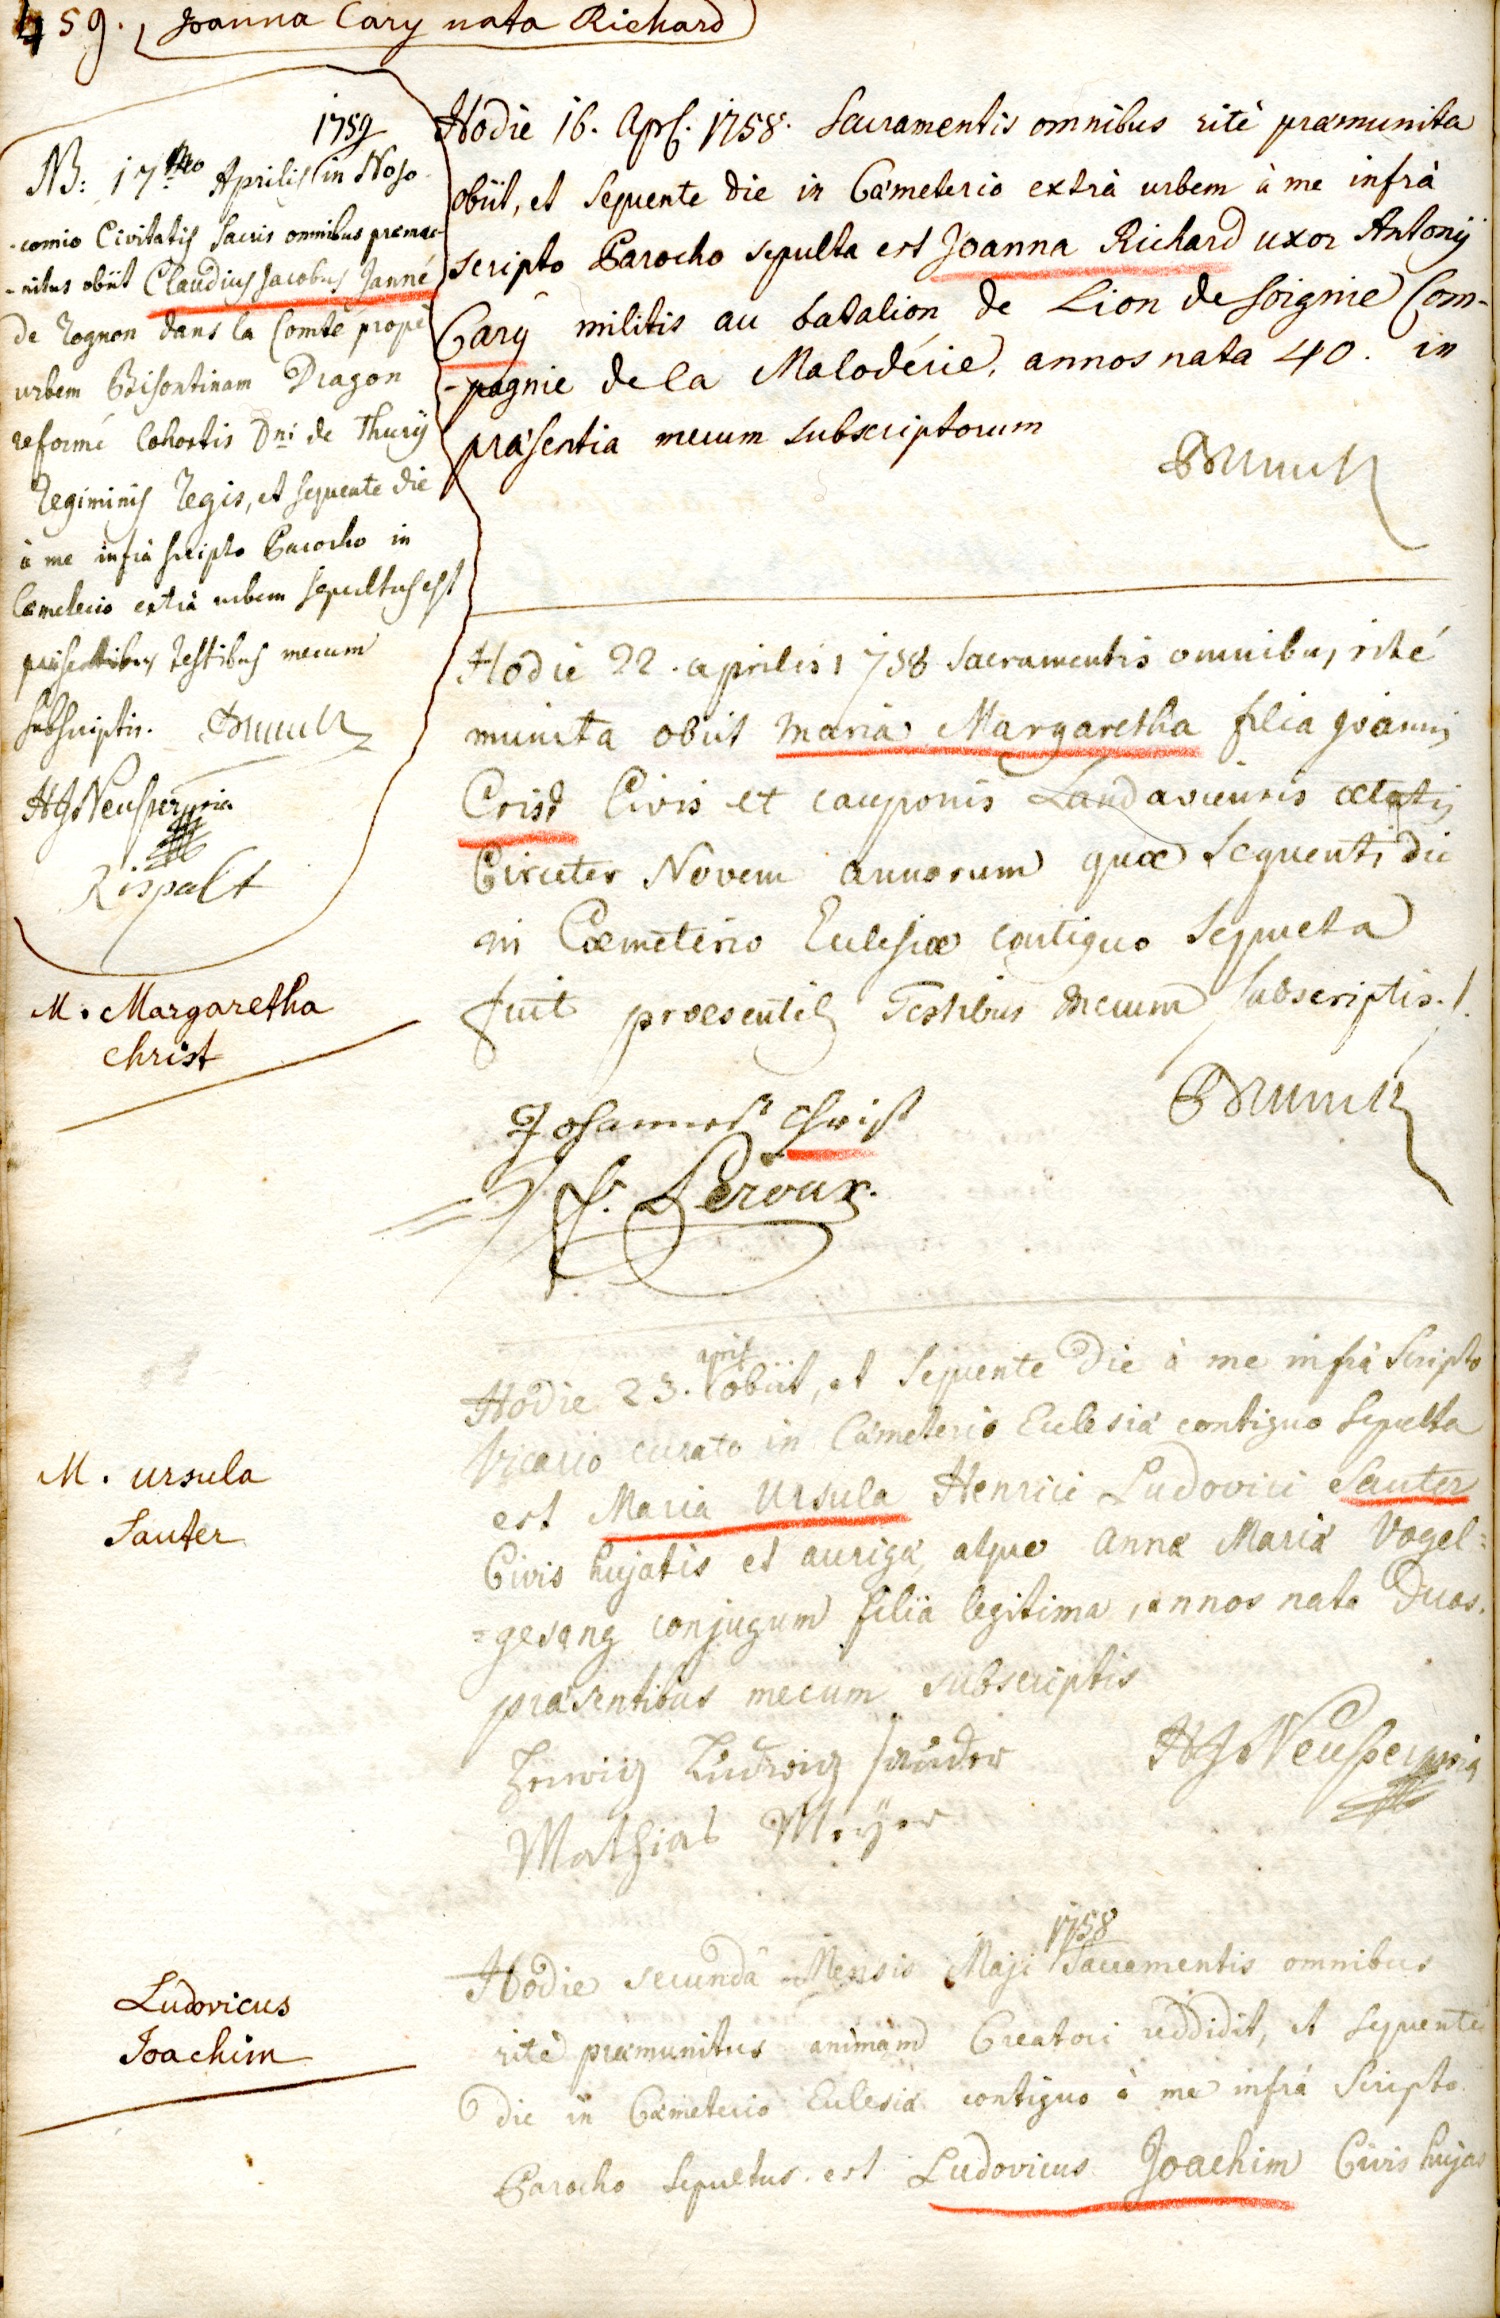 459. Joanna Cary nata Richard
1759
NB: 17mo Aprilis in Noso-
-comio Civitatis Sacris omnibus præmu-
-nitus obiit Claudius Jacobus Janné
de Rognon dans la Comté propè
urbem Bisontinam Dragon
reformé Cohortis Dni de Thurÿ
Regiminis Regis, et sequente die
à me infrà scripto Parocho in
Cæmeterio extrà urbem sepultus est
præsentibus testibus mecum
subscriptis. Brunck
HJNeusser mpria
Rispalt
Hodie 16. Apr. 1758. Sacramentis omnibus ritè præmunita
obiit, et sequente die in Cæmeterio extrà urbem à me infrà
scripto Parocho sepulta est Joanna Richard uxor Antonÿ
Carÿ militis au batalion de Lion de Soignie Com-
-pagnie de la Maloderie, annos nata 40. in
præsentia mecum subscriptorum
Brunck
M. Margaretha
Christ
Hodie 22. aprilis 1758 Sacramentis omnibus rité
munita obiit maria Margaretha filia Joannis
Crist Civis et cauponis Landaviensis ætatis
Circiter Novem annorum quæ sequenti die
in Cæmeterio Ecclesiæ contiguo Sepulta
fuit præsentib testibus mecum subscriptis./.
Brunck
Johannes Christ
f. Leroux.
M. Ursula
Sauter
april
Hodie 23. obiit, et sequente Die à me infrà Scripto
Vicario curato in Cæmeterio Ecclesiæ contiguo Sepulta
est Maria Ursula Henrici Ludovici Sauter
Civis hujatis et aurigæ, atque Annæ Mariæ Vogel=
=gesang conjugum filia legitima, annos nata Duos.
præsentibus mecum subscriptis
Henrig Ludwig Sauder
HJNeusser mpria
Mathias Meÿer
Ludovicus
Joachim
1758
Hodie secunda Mensis Maji Sacramentis omnibus
ritè præmunitus animam Creatori reddidit, et sequente
die in Cæmeterio Ecclesiæ contiguo à me infrà Scripto
Parocho Sepultus est Ludovicus Joachim Civis hujas